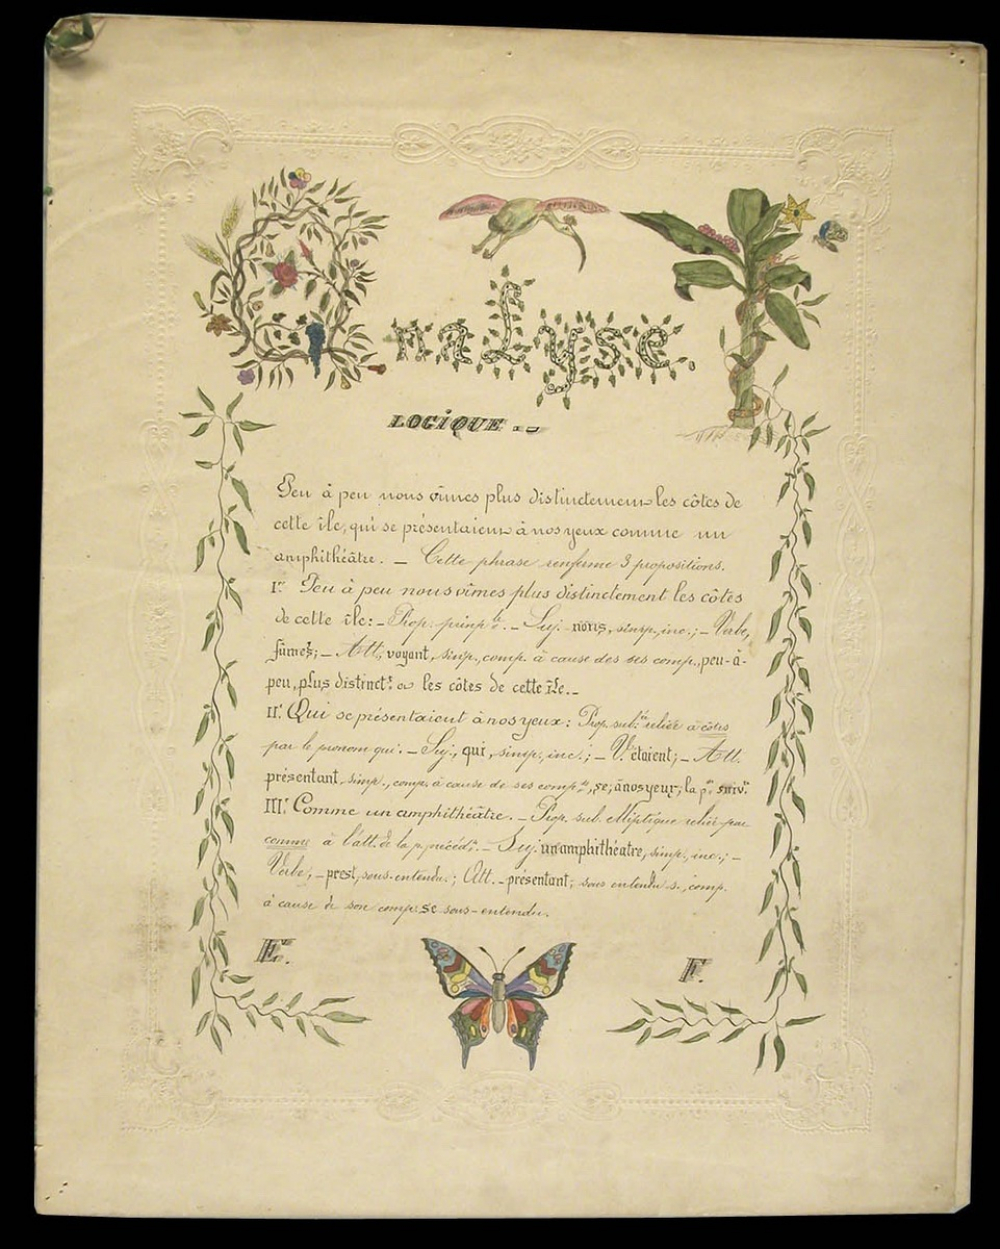 Analyse.
LOGIQUE..
Peu à peu nous vîmes plus distinctement les côtes de
cette île, qui se présentaient à nos yeux comme un
amphithéâtre. — Cette phrase renferme 3 propositions.
Iʳᵉ Peu à peu nous vîmes plus distinctement les côtes
de cette île: — Prop. prinpˡᵉ. — Suj. nous, simp., inc.; — Verbe,
fûmes; — Att., voyant, simp., comp. à cause des ses comp., peu-à-
peu, plus distincᵗ. et les côtes de cette île. —
IIᵉ. Qui se présentaient à nos yeux: Prop. sub. reliée à côtes
par le pronom qui. — Suj., qui, simp., inc.; — V. étaient; — Att.
présentant, simp., comp. à cause de ses comp., se, à nos yeux, la pᵒⁿ suivᵗᵉ
IIIᵉ. Comme un amphithéâtre. — Prop. sub. elliptique reliée par
comme à l'att. de la p. précédᵗᵉ. — Suj. un amphithéatre, simp., inc.; —
Verbe, — prest, sous-entendu.; Att. — présentant, sous entendu s., comp.
à cause de son comp. se sous-entendu.
E. F.